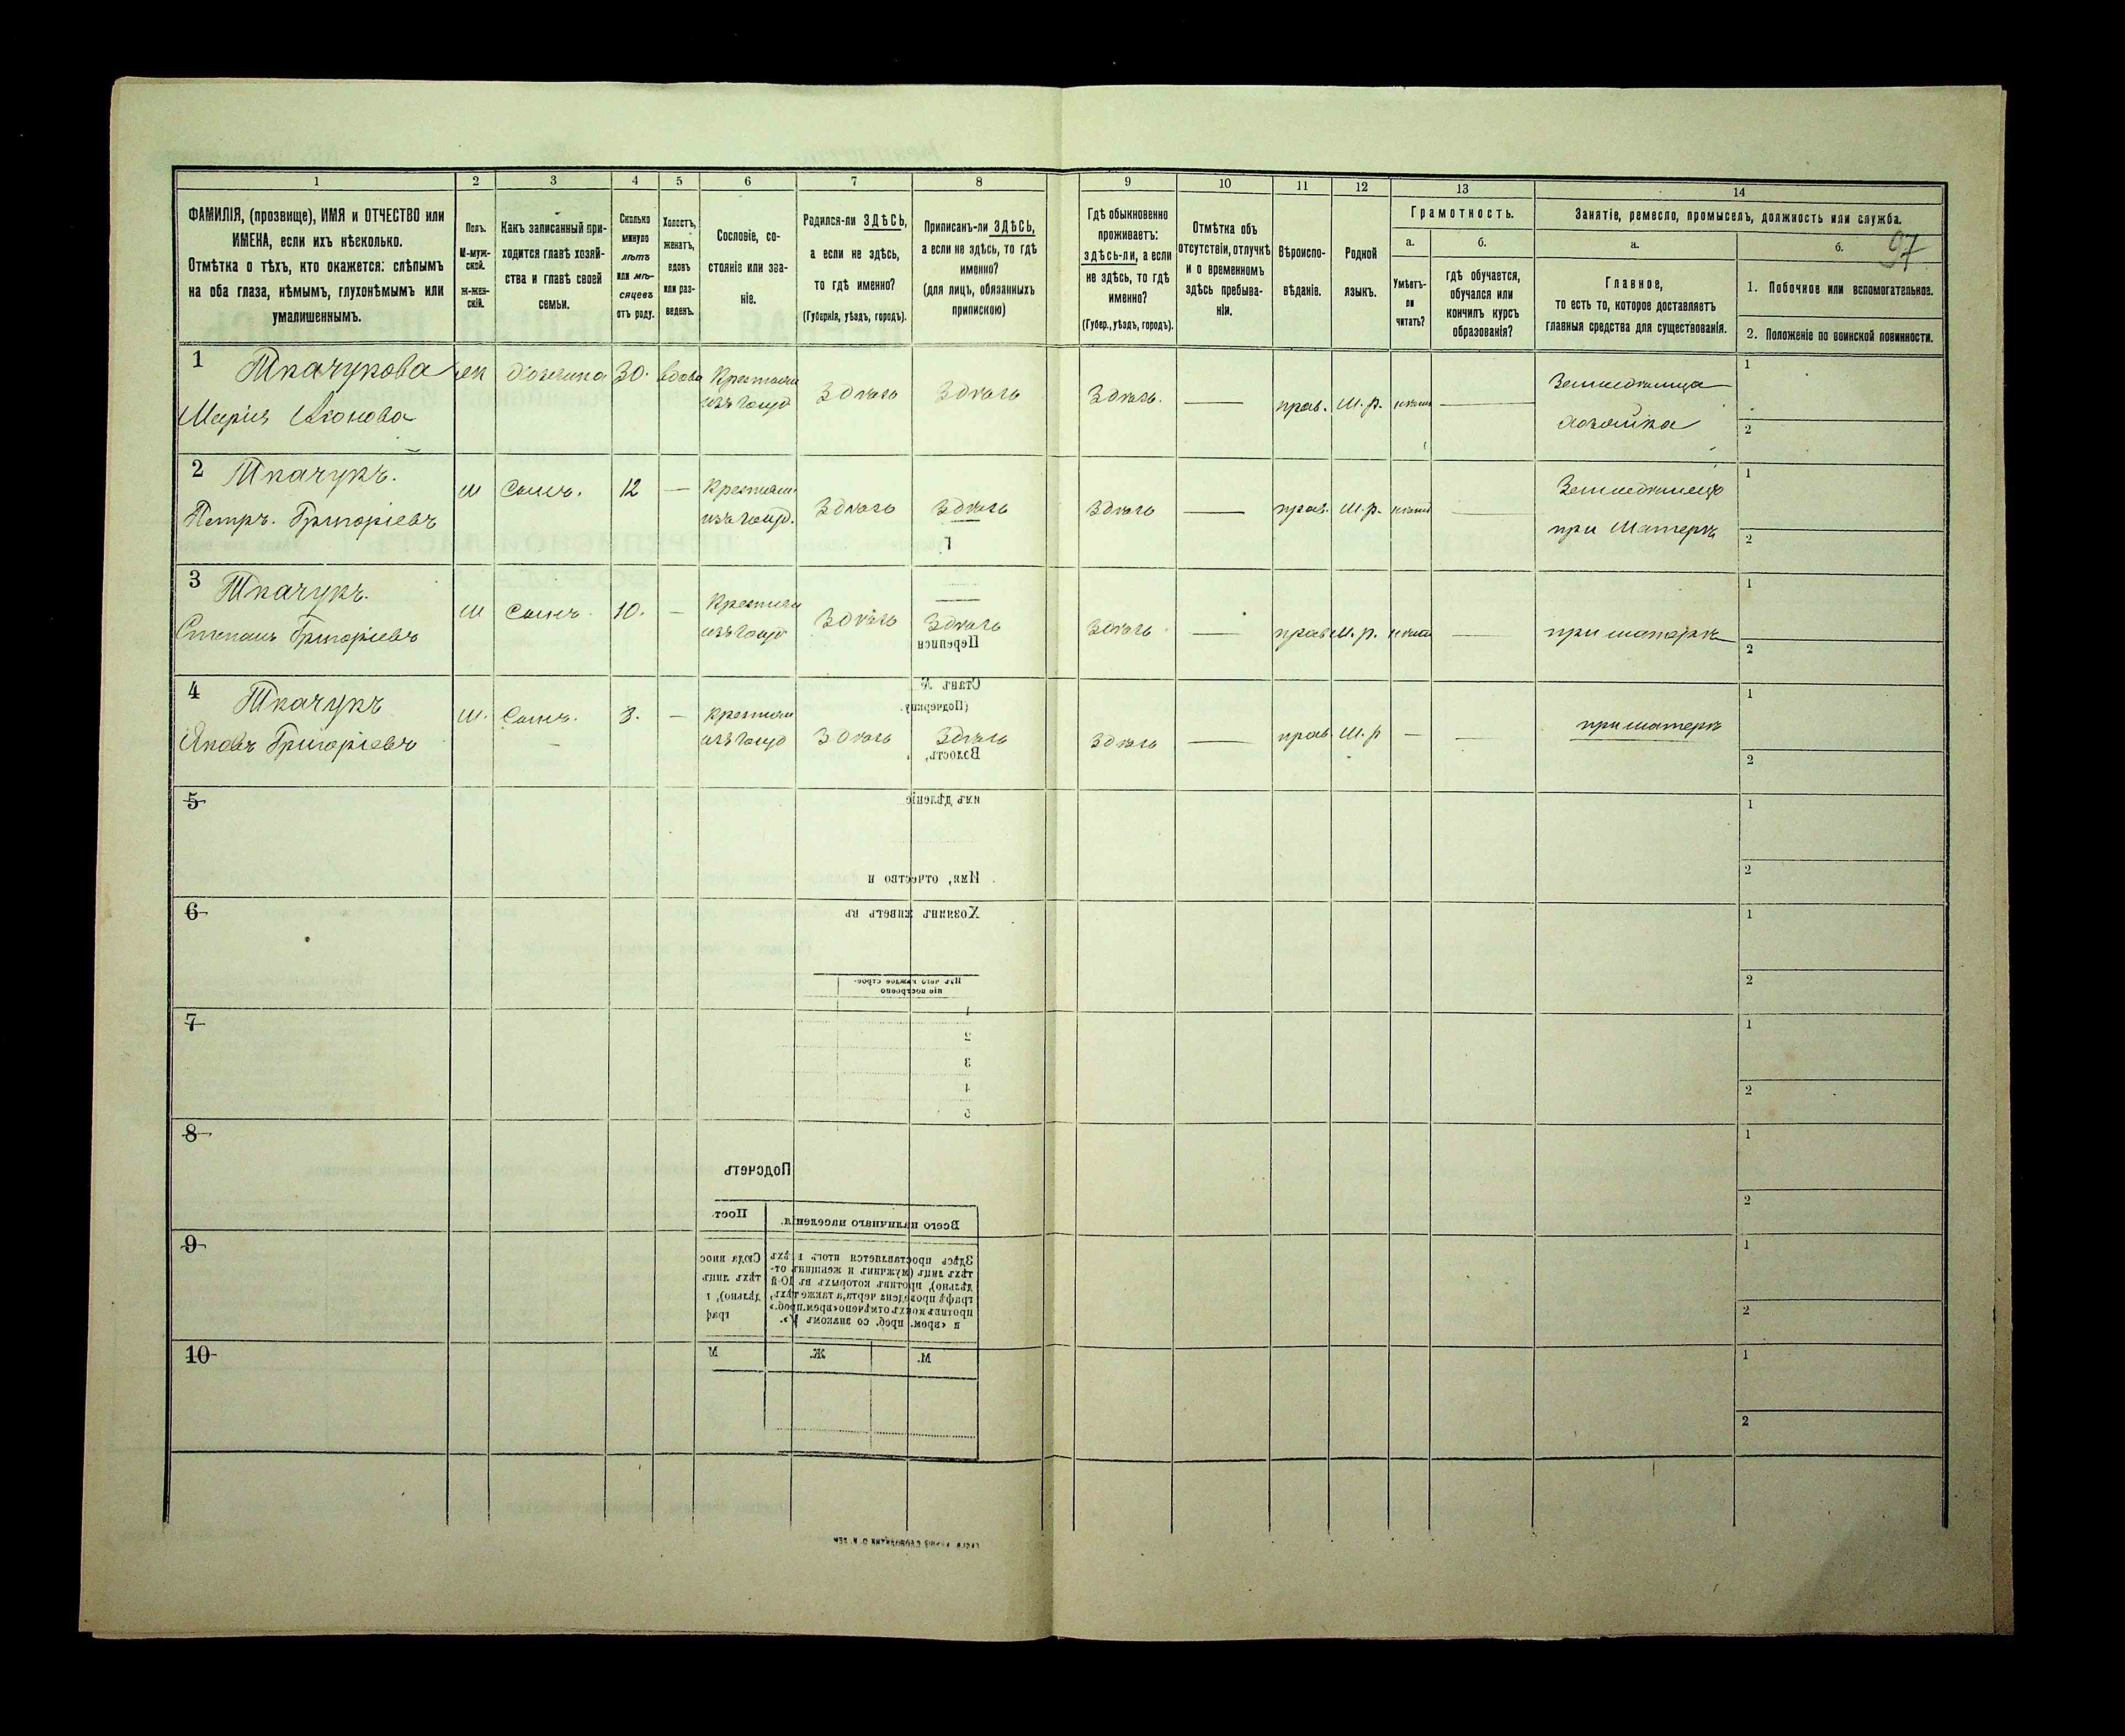 1 2 3 4 5 6 7 8 9 10 11 12 13 14
ФАМИЛІЯ, (прозвище), ИМЯ и ОТЧЕСТВО или
ИМЕНА, если ихъ нѣсколько.
Отмѣтка о тѣхъ, кто окажется: слѣпымъ
на оба глаза, нѣмымъ, глухонѣмымъ или
умалишеннымъ.
Полъ.
М-муж-
ской.
ж-жен-
скій.
Какъ записанный при-
ходится главѣ хозяй-
ства и главѣ своей
семьи.
Сколько
минуло
лѣтъ
или мѣ-
сяцевъ
отъ роду.
Холостъ,
женатъ,
вдовъ
или раз-
веденъ.
Сословіе, со-
стояніе или зва-
ніе.
Родился-ли ЗДѢСЬ,
а если не здѣсь,
то гдѣ именно?
(Губернія, уѣздъ, городъ).
Приписанъ-ли ЗДѢСЬ,
а если не здѣсь, то гдѣ
именно?
(для лицъ, обязанныхъ
припискою)
Гдѣ обыкновенно
проживаетъ:
здѣсь-ли, а если
не здѣсь, то гдѣ
именно?
(Губер., уѣздъ, городъ).
Отмѣтка объ
отсутствіи, отлучкѣ
и о временномъ
здѣсь пребыва-
ніи.
Вѣроиспо-
вѣданіе.
Родной
языкъ.
Грамотность.
а.
Умѣетъ-
ли
читать?
б.
гдѣ обучается,
обучался или
кончилъ курсъ
образованія?
Занятіе, ремесло, промыселъ, должность или служба.
а.
Главное,
то есть то, которое доставляетъ
главныя средства для существованія.
б.
97
1. Побочное или вспомогательное.
2. Положеніе по воинской повинности.
1 Ткачукова
Марія
30. вдова
изъ
Здѣсь Здѣсь Здѣсь. — прав. М.р. —
хозяйка
1
2
2 Ткачукъ.
Петръ. Григоріевъ
М Сынъ. 12 —
изъ
Здѣсь Здѣсь Здѣсь — прав. М.р. —
при Матерѣ
1
2
3 Ткачукъ.
Степанъ Григоріевъ
М Сынъ. 10. —
изъ
Здѣсь Здѣсь Здѣсь — прав М.р. —
при матерѣ
1
2
4 Ткачукъ
Яковъ Григоріевъ
М. Сынъ. 3. —
изъ
Здѣсь Здѣсь Здѣсь — прав. М.р — —
при матерѣ
1
2
5
1
2
6
1
2
7
1
2
8
1
2
9
1
2
10
1
2